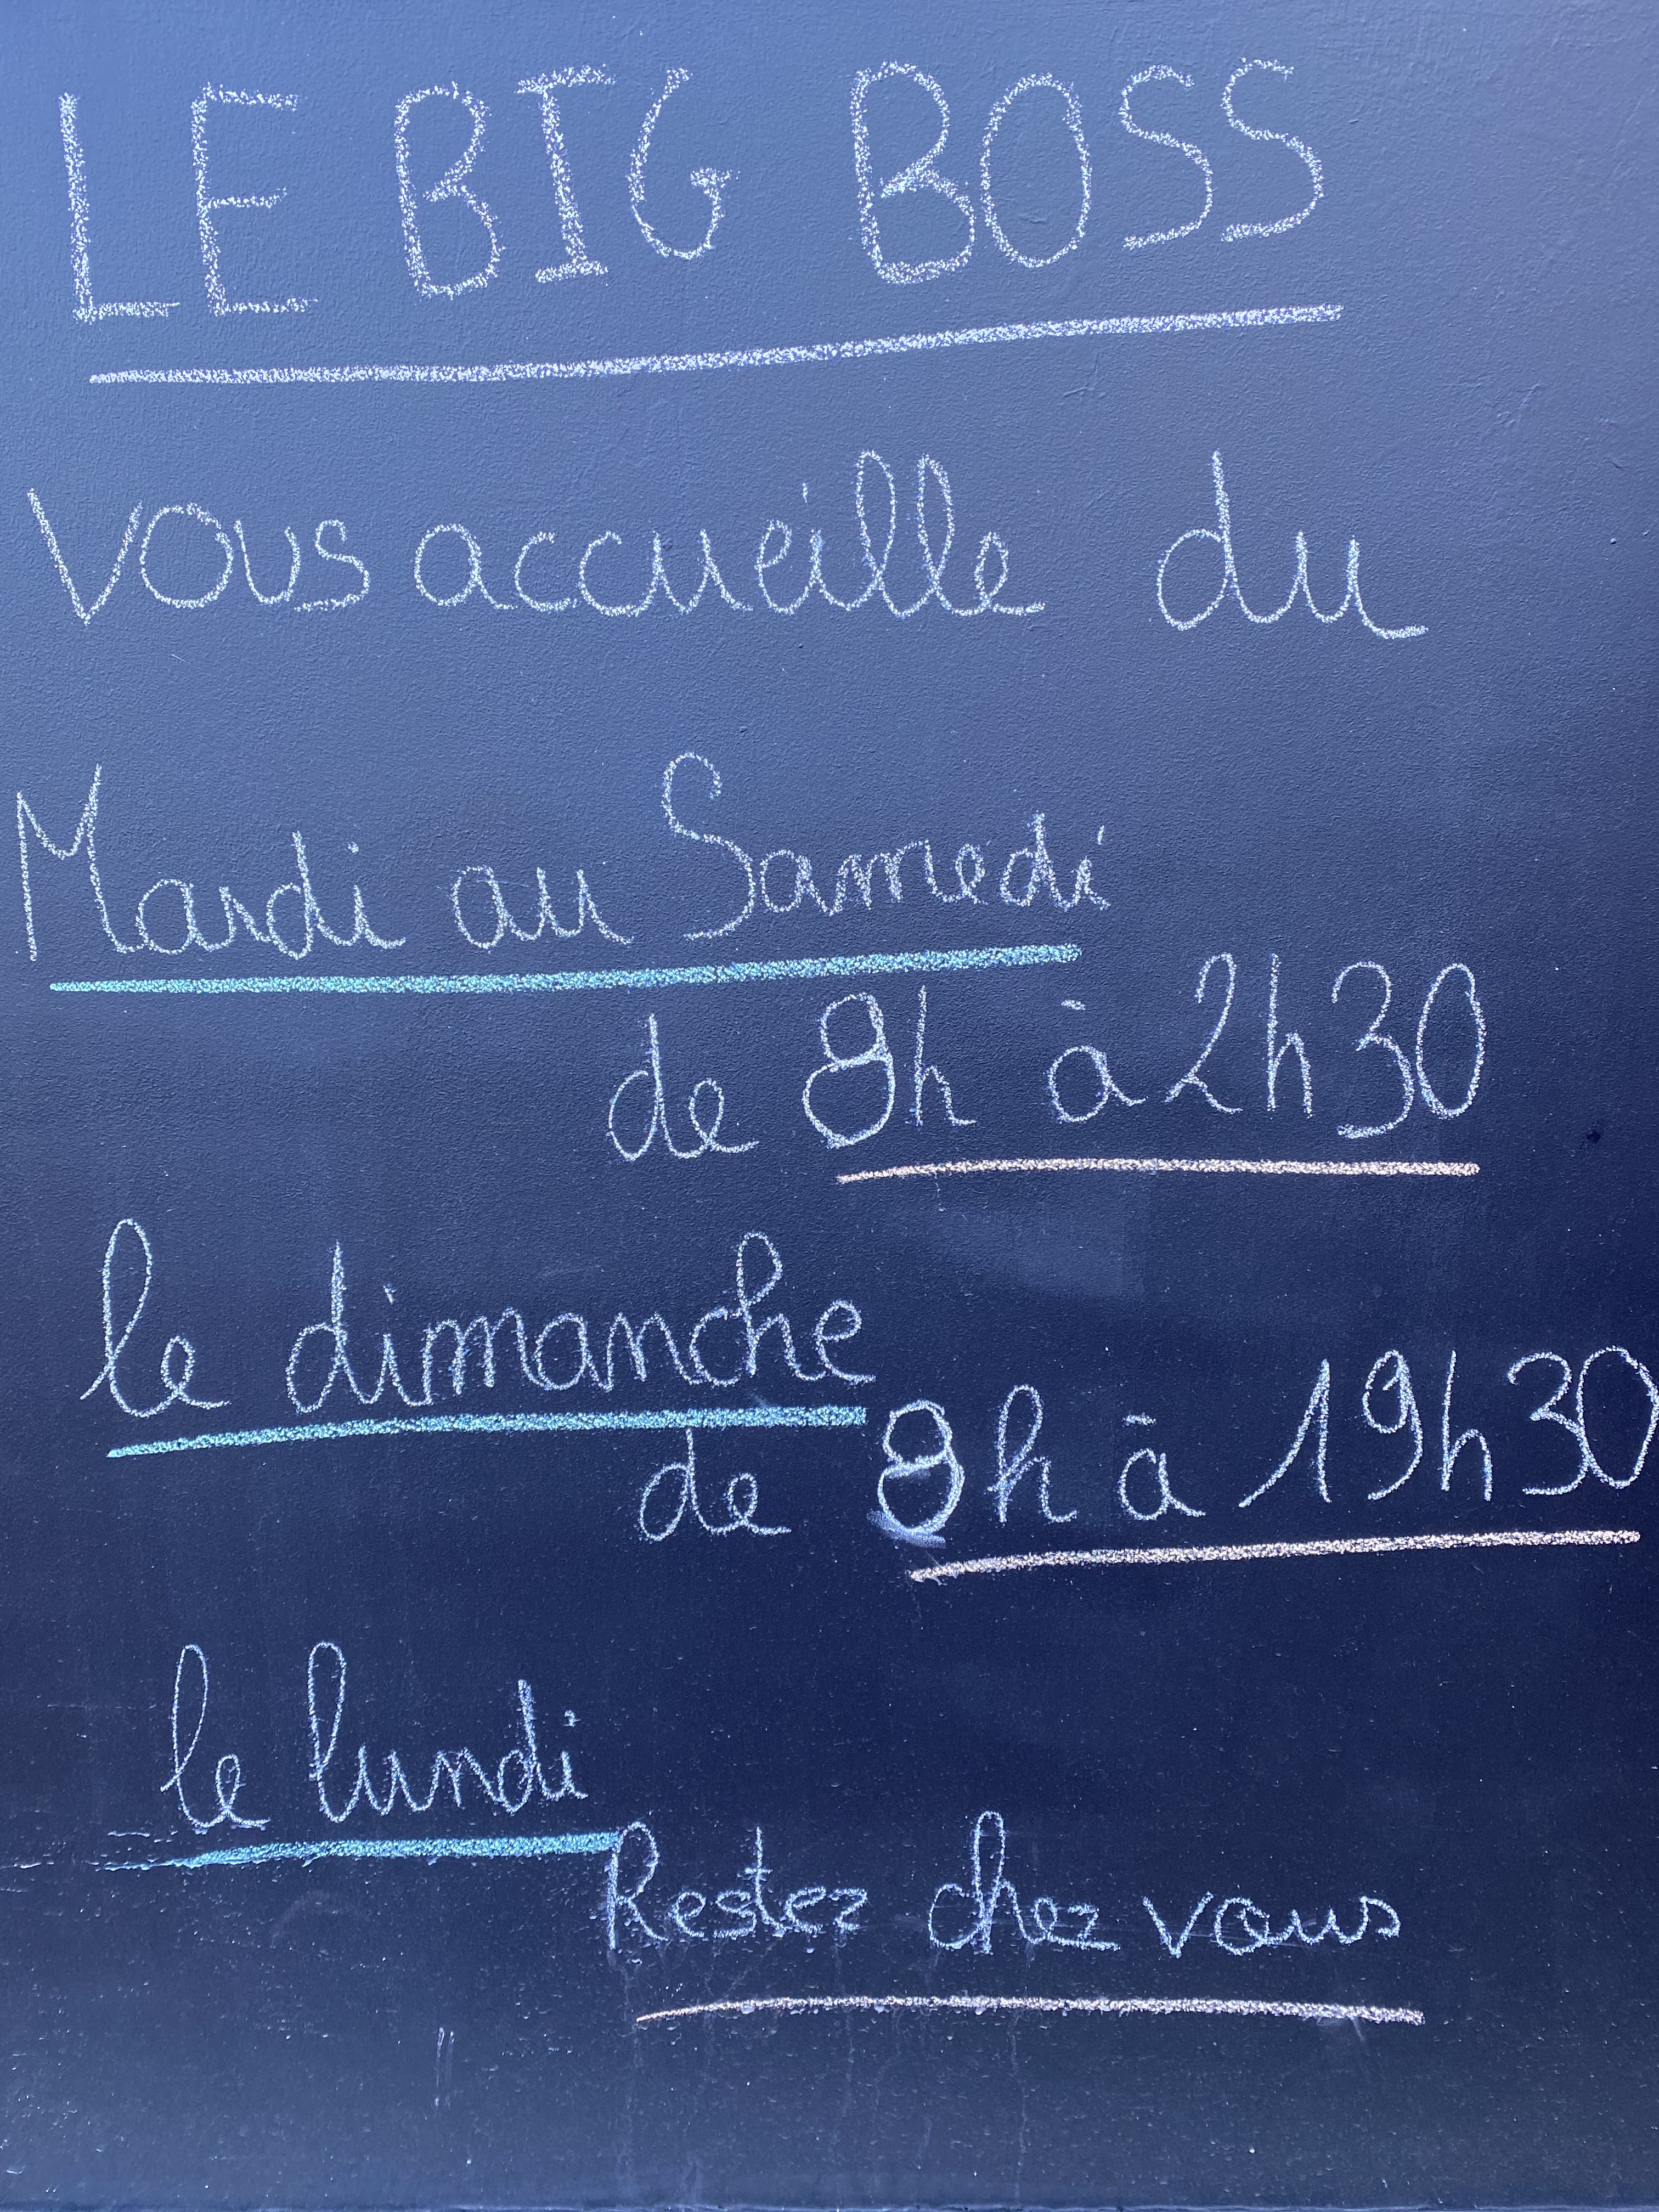 LE BIG BOSS
Vous accueille du
Mardi au Samedi
de 8h à 2h30
le dimanche
de 8h à 19h30
le lundi
Restez chez vous